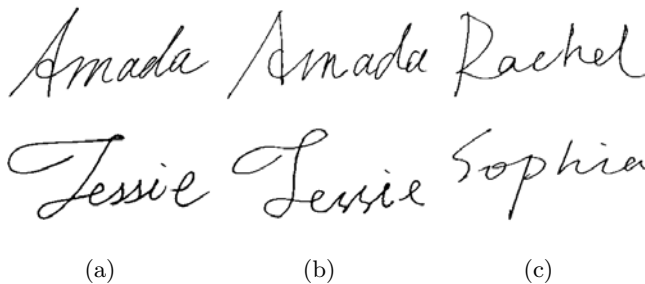 Amada Amada Rachel
Jessie Jessie Sophia
(a) (b) (c)